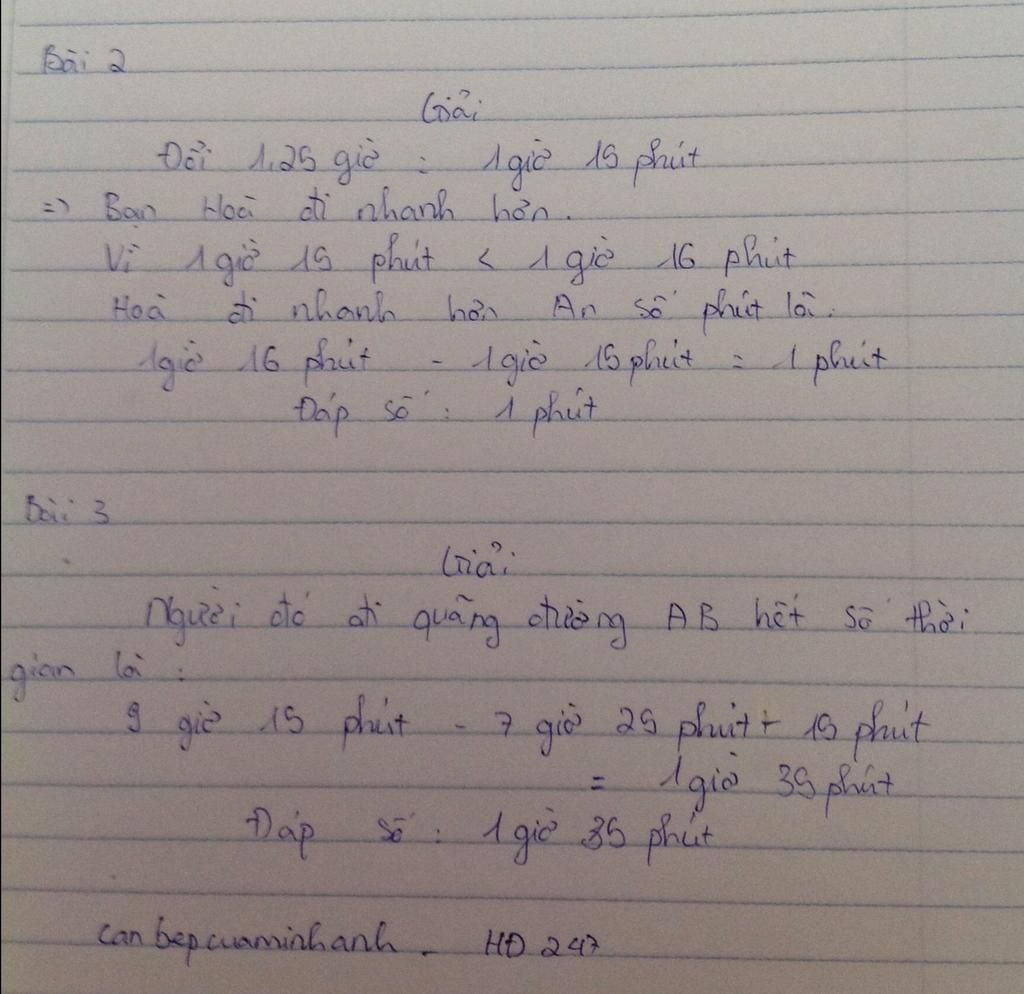 Bài 2
Giải
Đổi 1,25 giờ = 1 giờ 15 phút
=> Bạn Hoà đi nhanh hơn.
Vì 1 giờ 15 phút < 1 giờ 16 phút
Hoà đi nhanh hơn An số phút là:
1 giờ 16 phút - 1 giờ 15 phút = 1 phút
Đáp số : 1 phút
Bài 3
Giải
Người đó đi quãng đường AB hết số thời
gian là :
9 giờ 15 phút - 7 giờ 25 phút - 15 phút
= 1 giờ 35 phút
Đáp số : 1 giờ 35 phút
can bepcuaminhanh - HĐ 247